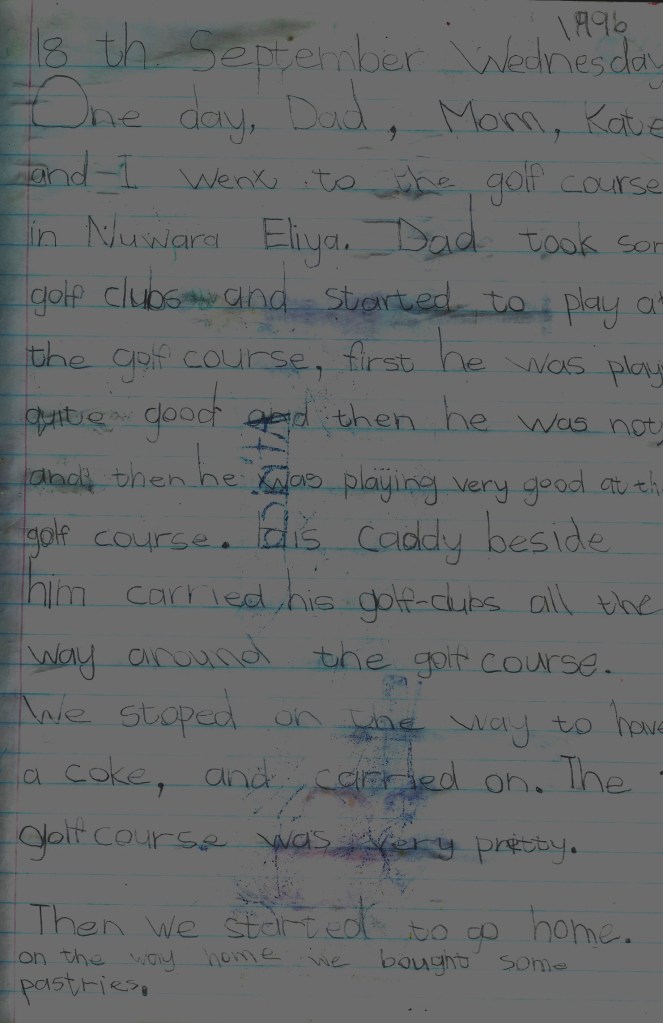 1996
18 th September Wednesday
One day, Dad, Mom, Katie
and I went to the golf course
in Nuwara Eliya. Dad took som
golf clubs and started to play at
the golf course, first he was play
quite good and then he was not
and then he was playing very good at th
golf course. His caddy beside
him carried his golf-clubs all the
way around the golf course.
We stoped on the way to have
a coke, and carried on. The
golf course was very pretty.
Then we started to go home.
on the way home we bought some
pastries.